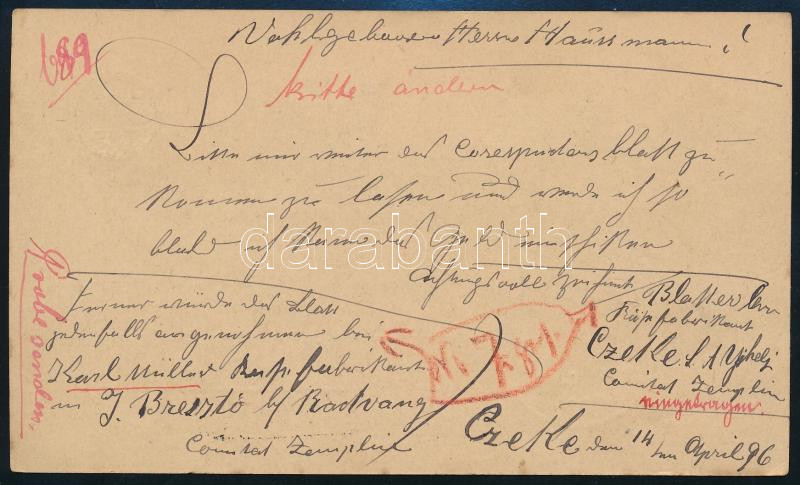 Wohlgeboren Herrn Haussmann!
689
bitte ändern
Bitte mir weiter das Corespondensblatt zu
kommen zu lasen und werde ich so
bald ich kann das Geld einschiken
Achtungsvoll zeichnet
Blatter
Käsefabrikant
Czeke S. A. Ujhely
Comitat Zemplin
eingetragen.
Ferner würde das Blatt
jedenfalls angenommen bei
Karl Müller Käsefabrikant
in J. Bresztó by Radvang
Comitat Zemplin
Probe senden.
Nr. 781.
Czeke den 14ten April 96
darabanth